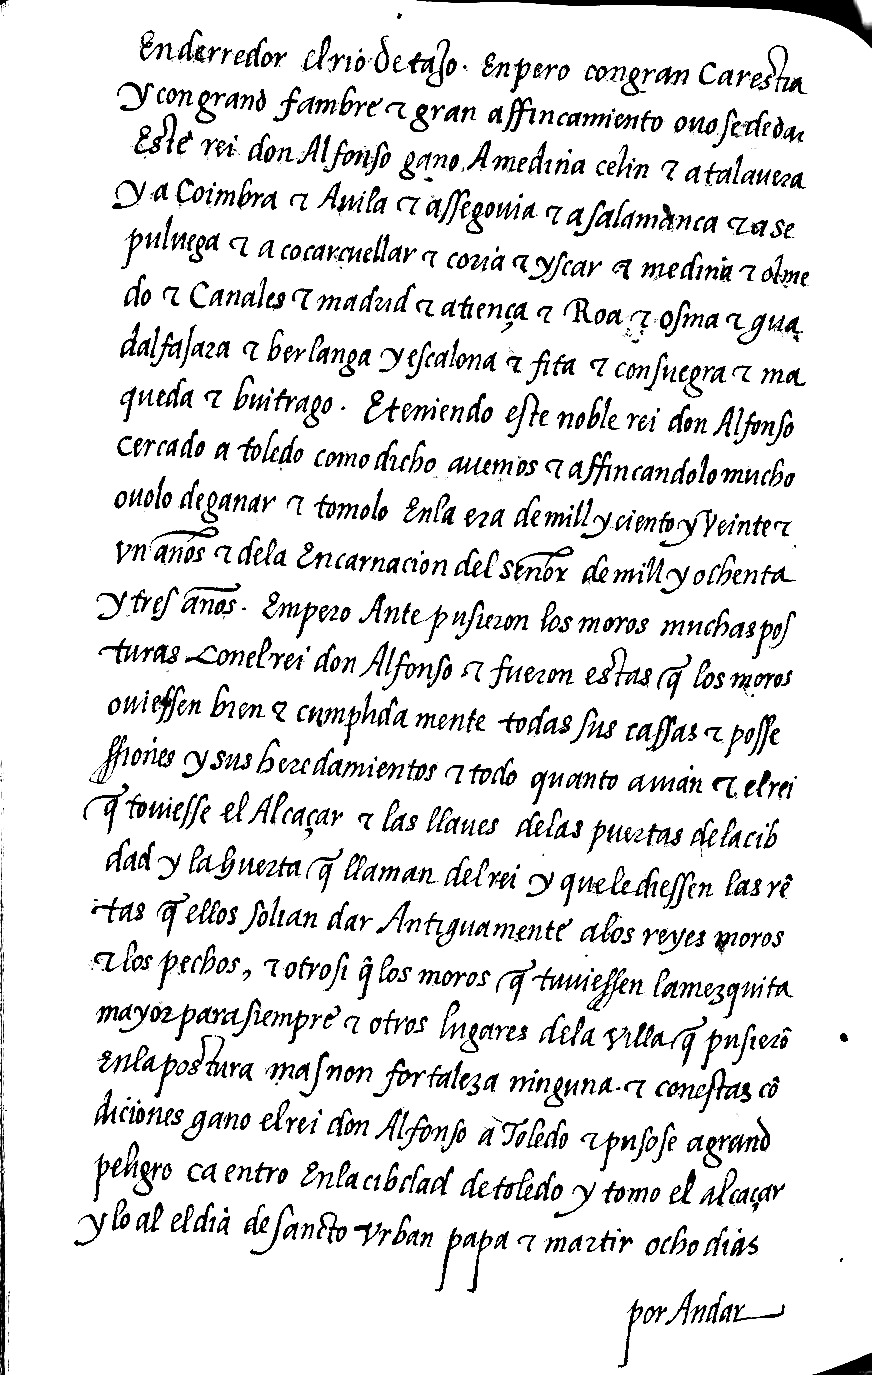 Enderredor el rio de tajo. Enpero congran Carestia
y congrand fambre & gran affincamiento ovo se de dar
Este rei don Alfonso gano Amedina celin & atalavera
y a Coimbra & Avila & assegovia & asalamanca & a se
pulvega & a cocarcuellar & coria & yscar & medina & olme
do & Canales & madrid & atiença & Roa & osma & gua
dalfajara & berlanga y escalona & fita & consuegra & ma
queda & buitrago. Eteniendo este noble rei don Alfonso
cercado a toledo como dicho avemos & affincandolo mucho
ovolo deganar & tomolo Enla era de mill y ciento y Veinte &
vn años & dela Encarnacion del señor de mill y ochenta
y tres años. Empero Ante pusieron los moros muchas pos
turas Conel rei don Alfonso & fueron estas q̃ los moros
oviessen bien & cumplida mente todas sus cassas & posse
ssiones y sus heredamientos & todo quanto avian & el rei
q̃ toviesse el Alcaçar & las llaves delas puertas dela cib
dad y la huerta q̃ llaman del rei y que le diessen las rẽ
tas q̃ ellos solian dar Antiguamente alos reyes moros
& los pechos, & otrosi q̃ los moros q̃ tuviessen lamezquita
mayor para siempre & otros lugares dela villa q̃ pusierõ
Enla postura mas non fortaleza ninguna. & conestas cõ
diciones gano el rei don Alfonso a Toledo & pusose agrand
peligro ca entro Enla cibdad de toledo y tomo el alcaçar
y lo al el dia de sancto vrban papa & martir ocho dias
por Andar